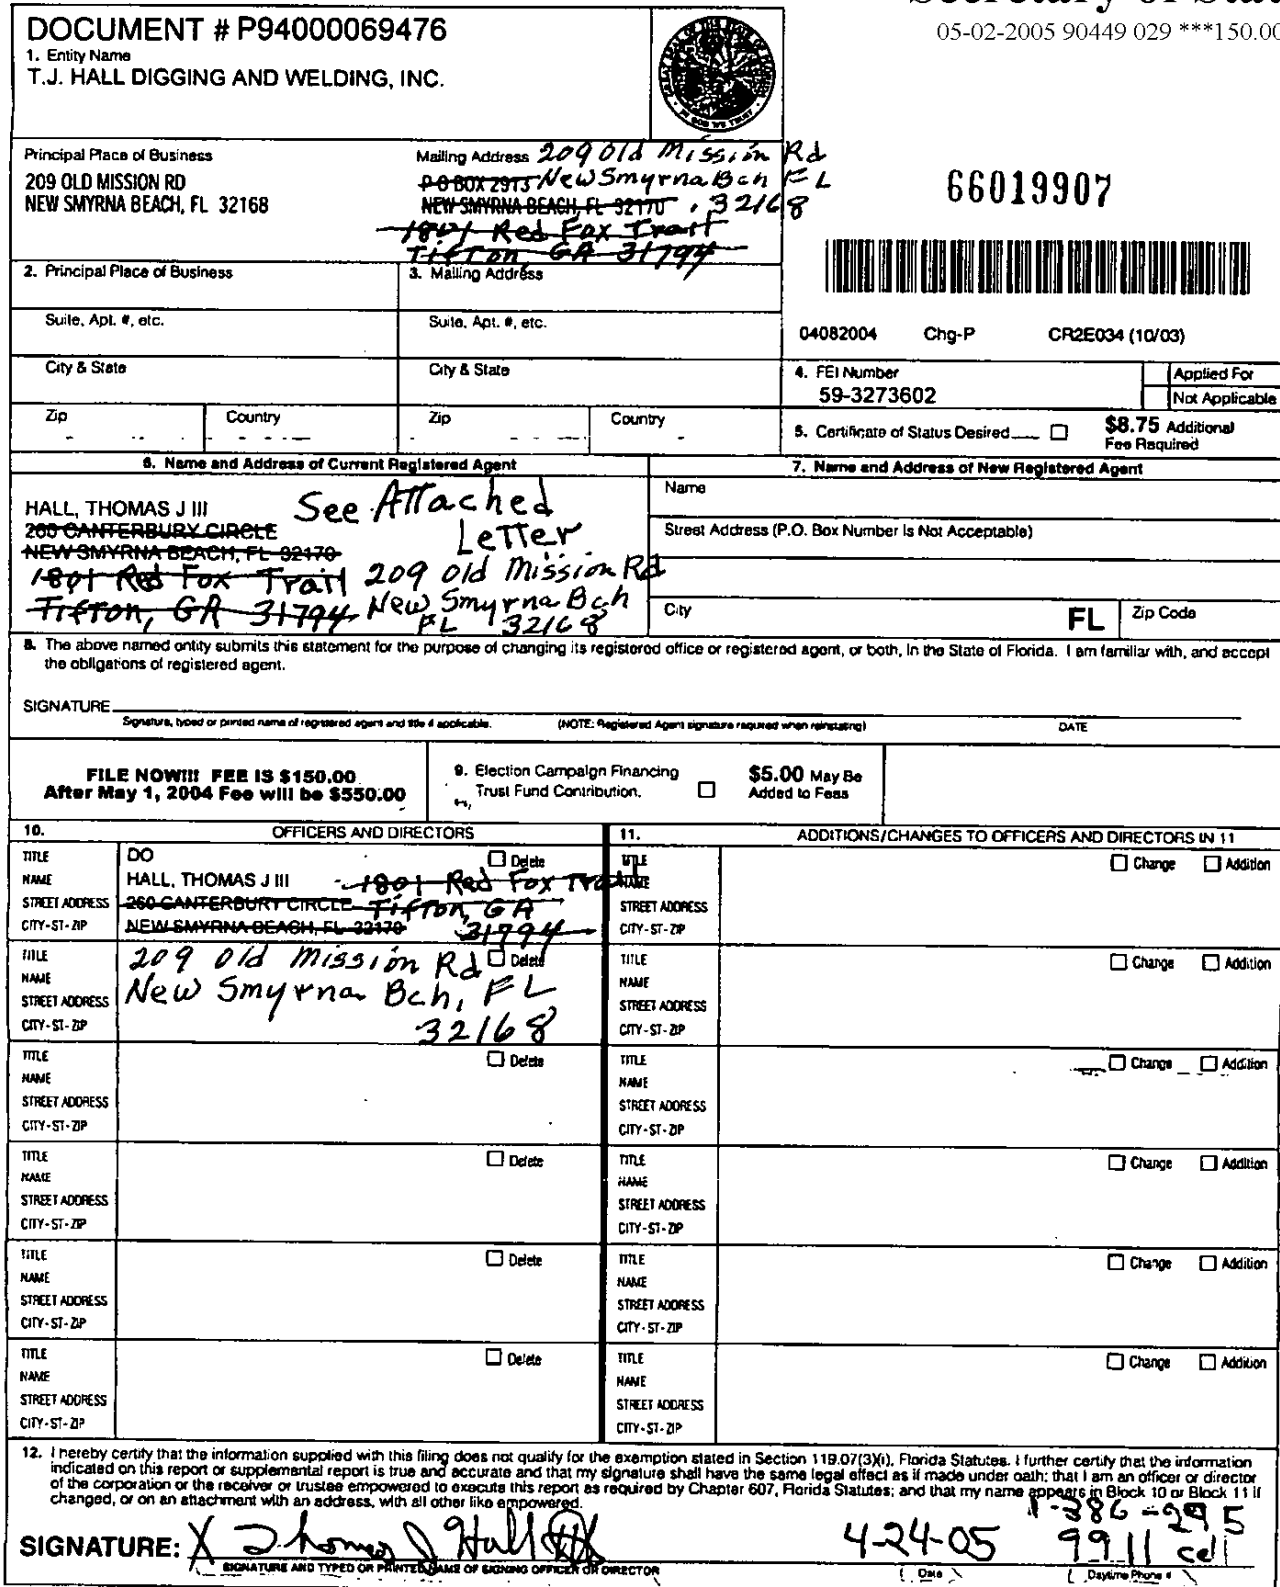 05-02-2005 90449 029 ***150.00
DOCUMENT # P94000069476
1. Entity Name
T.J. HALL DIGGING AND WELDING, INC.
Principal Place of Business
209 OLD MISSION RD
NEW SMYRNA BEACH, FL 32168
Mailing Address 209 Old Mission Rd
P O BOX 2913 New Smyrna Bch FL
NEW SMYRNA BEACH, FL 32170 . 32168
1801 Red Fox Trail
Tifton, GA 31794
66019907
2. Principal Place of Business
3. Mailing Address
Suite, Apt. #, etc.
Suite, Apt. #, etc.
04082004 Chg-P CR2E034 (10/03)
City & State
City & State
4. FEI Number
59-3273602
Applied For
Not Applicable
Zip
Country
Zip
Country
5. Certificate of Status Desired
$8.75 Additional
Fee Required
6. Name and Address of Current Registered Agent
HALL, THOMAS J III
See Attached
Letter
260 CANTERBURY CIRCLE
NEW SMYRNA BEACH, FL 32170
1801 Red Fox Trail 209 Old Mission Rd
Tifton, GA 31794 New Smyrna Bch
FL 32168
7. Name and Address of New Registered Agent
Name
Street Address (P.O. Box Number is Not Acceptable)
City
FL
Zip Code
8. The above named entity submits this statement for the purpose of changing its registered office or registered agent, or both, in the State of Florida. I am familiar with, and accept
the obligations of registered agent.
SIGNATURE
Signature, typed or printed name of registered agent and title if applicable.
(NOTE: Registered Agent signature required when reinstating)
DATE
FILE NOW!!! FEE IS $150.00
After May 1, 2004 Fee will be $550.00
9. Election Campaign Financing
Trust Fund Contribution.
$5.00 May Be
Added to Fees
10. OFFICERS AND DIRECTORS
TITLE DO Delete
NAME HALL, THOMAS J III 1801 Red Fox Trail
STREET ADDRESS 260 CANTERBURY CIRCLE Tifton, GA
CITY-ST-ZIP NEW SMYRNA BEACH, FL 32170 31794
TITLE 209 Old Mission Rd Delete
NAME New Smyrna Bch, FL
STREET ADDRESS
CITY-ST-ZIP 32168
TITLE Delete
NAME
STREET ADDRESS
CITY-ST-ZIP
TITLE Delete
NAME
STREET ADDRESS
CITY-ST-ZIP
TITLE Delete
NAME
STREET ADDRESS
CITY-ST-ZIP
TITLE Delete
NAME
STREET ADDRESS
CITY-ST-ZIP
11. ADDITIONS/CHANGES TO OFFICERS AND DIRECTORS IN 11
TITLE Change Addition
NAME
STREET ADDRESS
CITY-ST-ZIP
TITLE Change Addition
NAME
STREET ADDRESS
CITY-ST-ZIP
TITLE Change Addition
NAME
STREET ADDRESS
CITY-ST-ZIP
TITLE Change Addition
NAME
STREET ADDRESS
CITY-ST-ZIP
TITLE Change Addition
NAME
STREET ADDRESS
CITY-ST-ZIP
TITLE Change Addition
NAME
STREET ADDRESS
CITY-ST-ZIP
12. I hereby certify that the information supplied with this filing does not qualify for the exemption stated in Section 119.07(3)(i), Florida Statutes. I further certify that the information
indicated on this report or supplemental report is true and accurate and that my signature shall have the same legal effect as if made under oath; that I am an officer or director
of the corporation or the receiver or trustee empowered to execute this report as required by Chapter 607, Florida Statutes; and that my name appears in Block 10 or Block 11 if
changed, or on an attachment with an address, with all other like empowered.
1-386-295
SIGNATURE: X Thomas J Hall III 4-24-05 9911 cell
SIGNATURE AND TYPED OR PRINTED NAME OF SIGNING OFFICER OR DIRECTOR
Date
Daytime Phone #